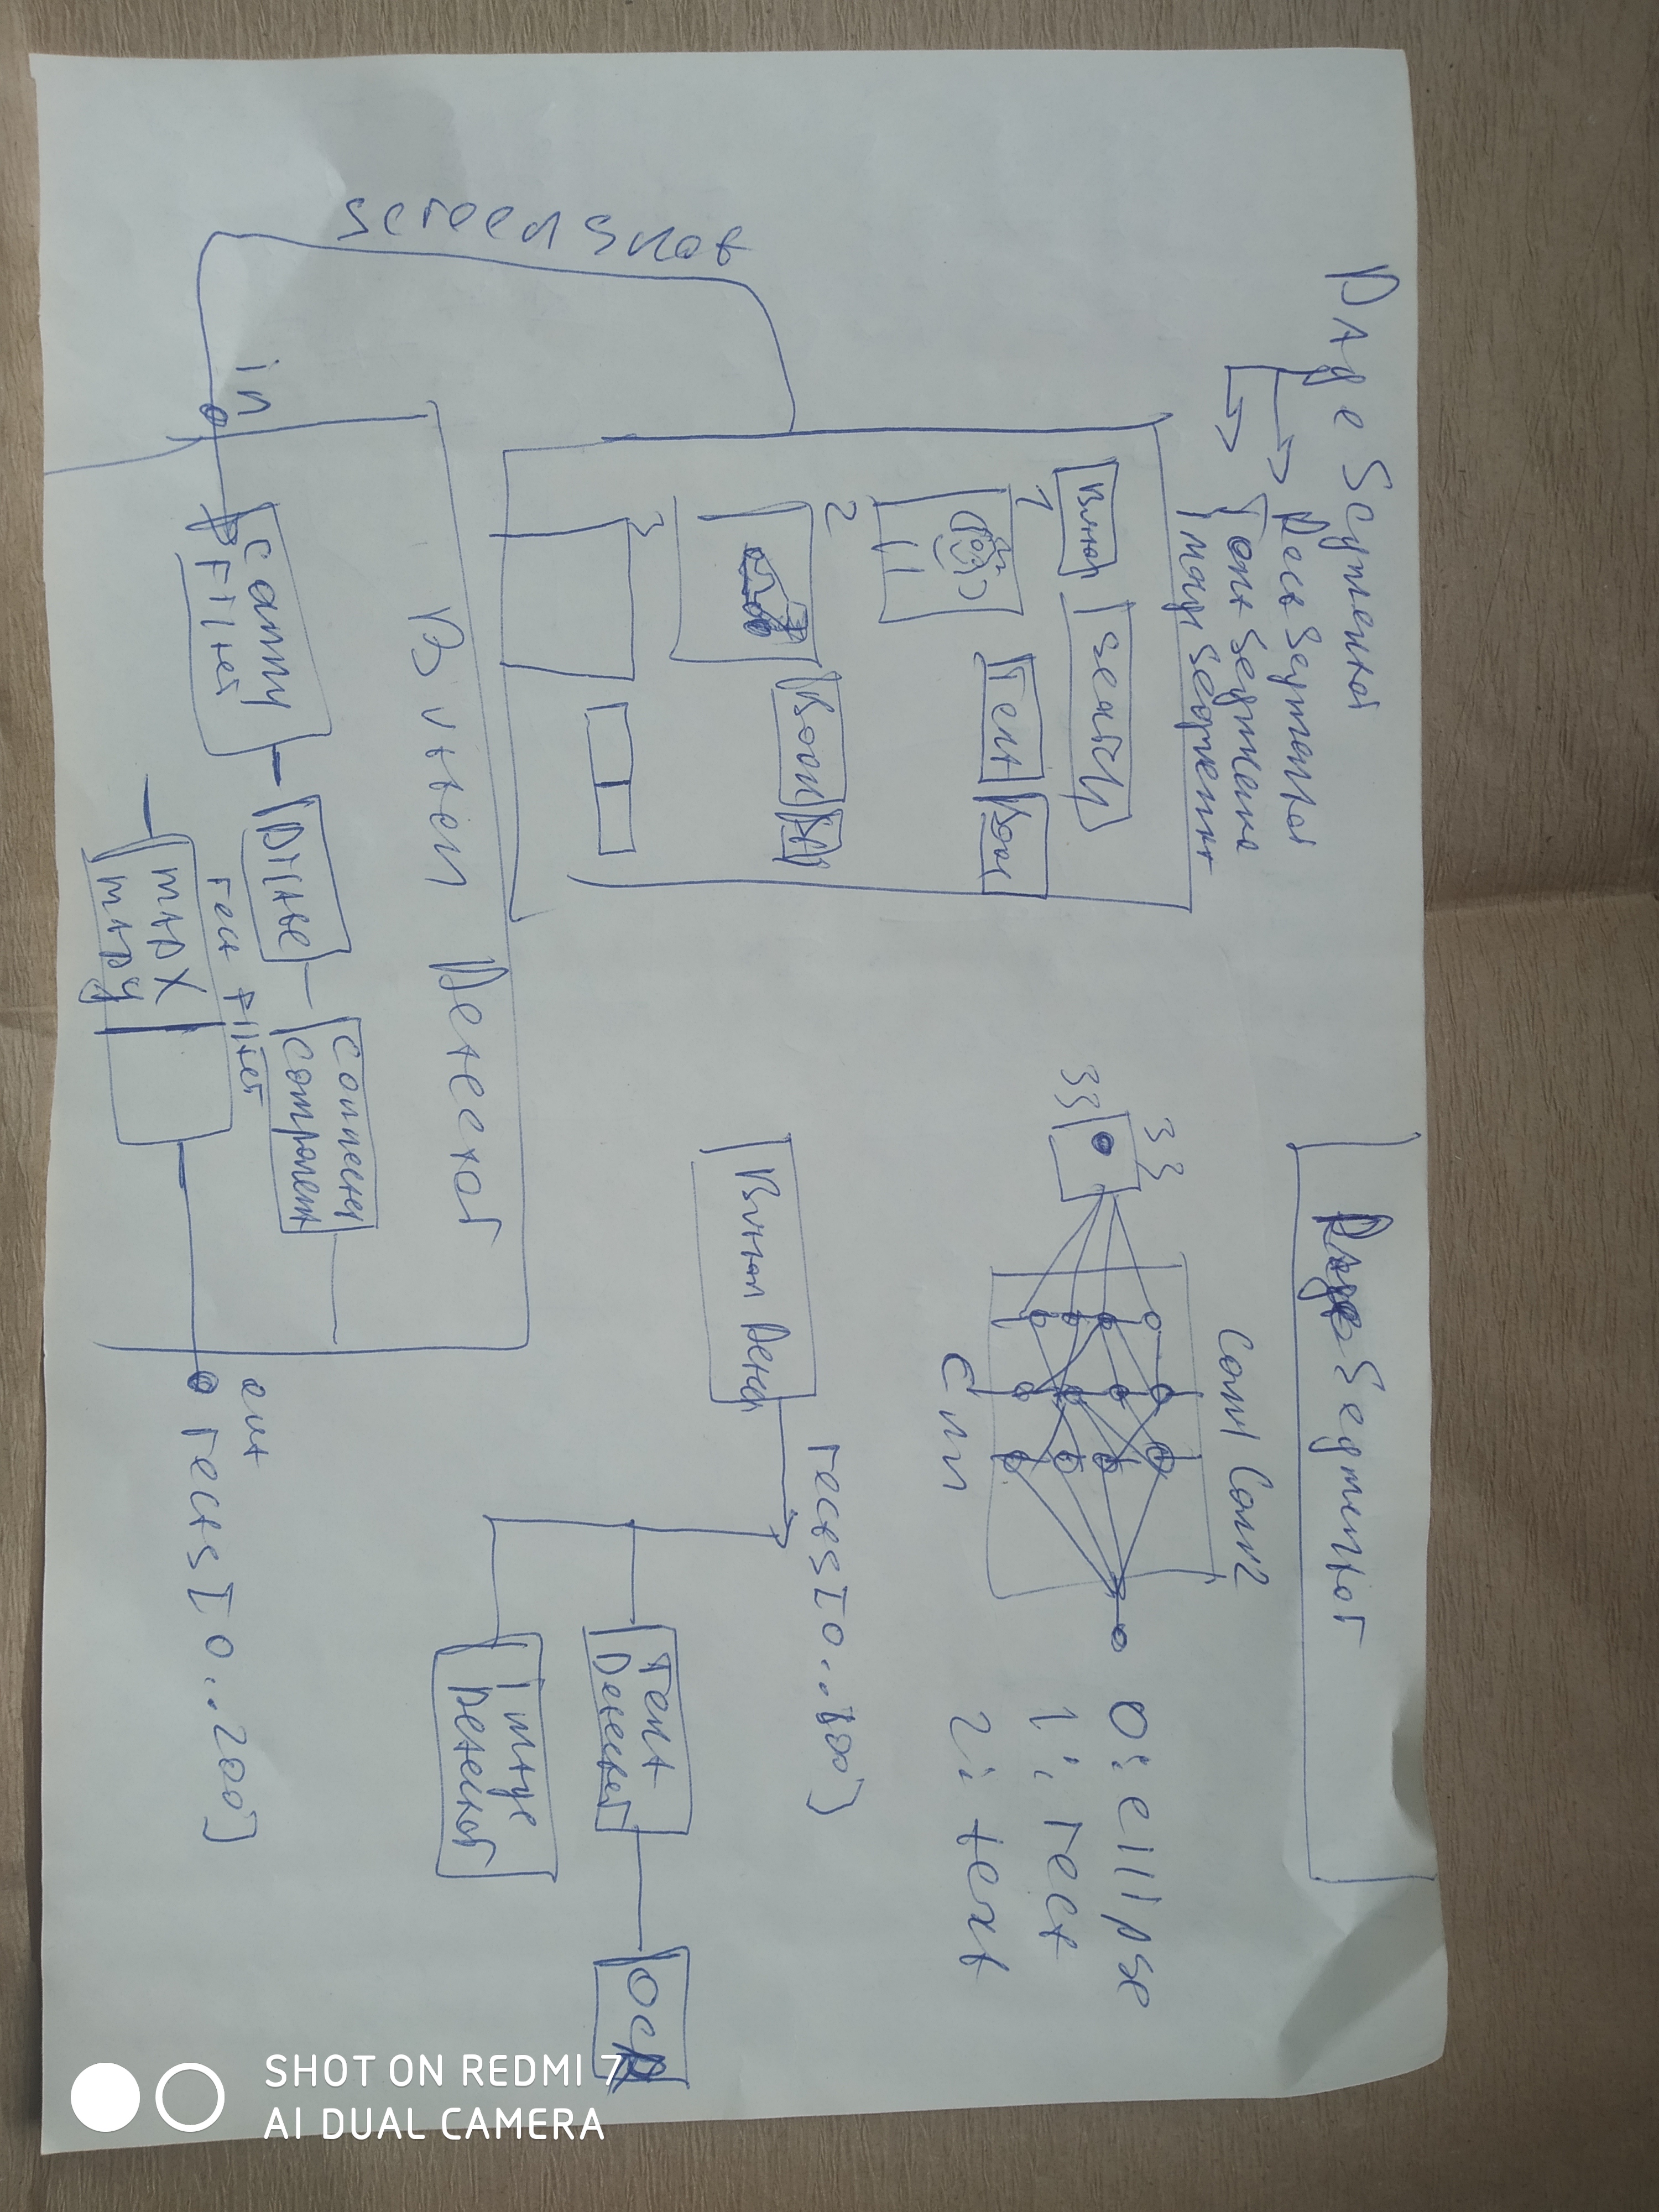 Page Segmentor
Rect Segmentor
Text Segment
Image Segment
Button
Search
1
Text
Book
2
Book
3
Screen Shot
Button Detector
in
Canny
Filter
Dilate
Connected
Component
rect Filter
map X
map Y
out
rects [0..200]
Page Segmentor
Conv1 Conv2
33
33
CNN
0: ellipse
1: rect
2: text
rects [0..100]
Button Detect
Text
Detector
OCR
Image
Detector
SHOT ON REDMI 7
AI DUAL CAMERA